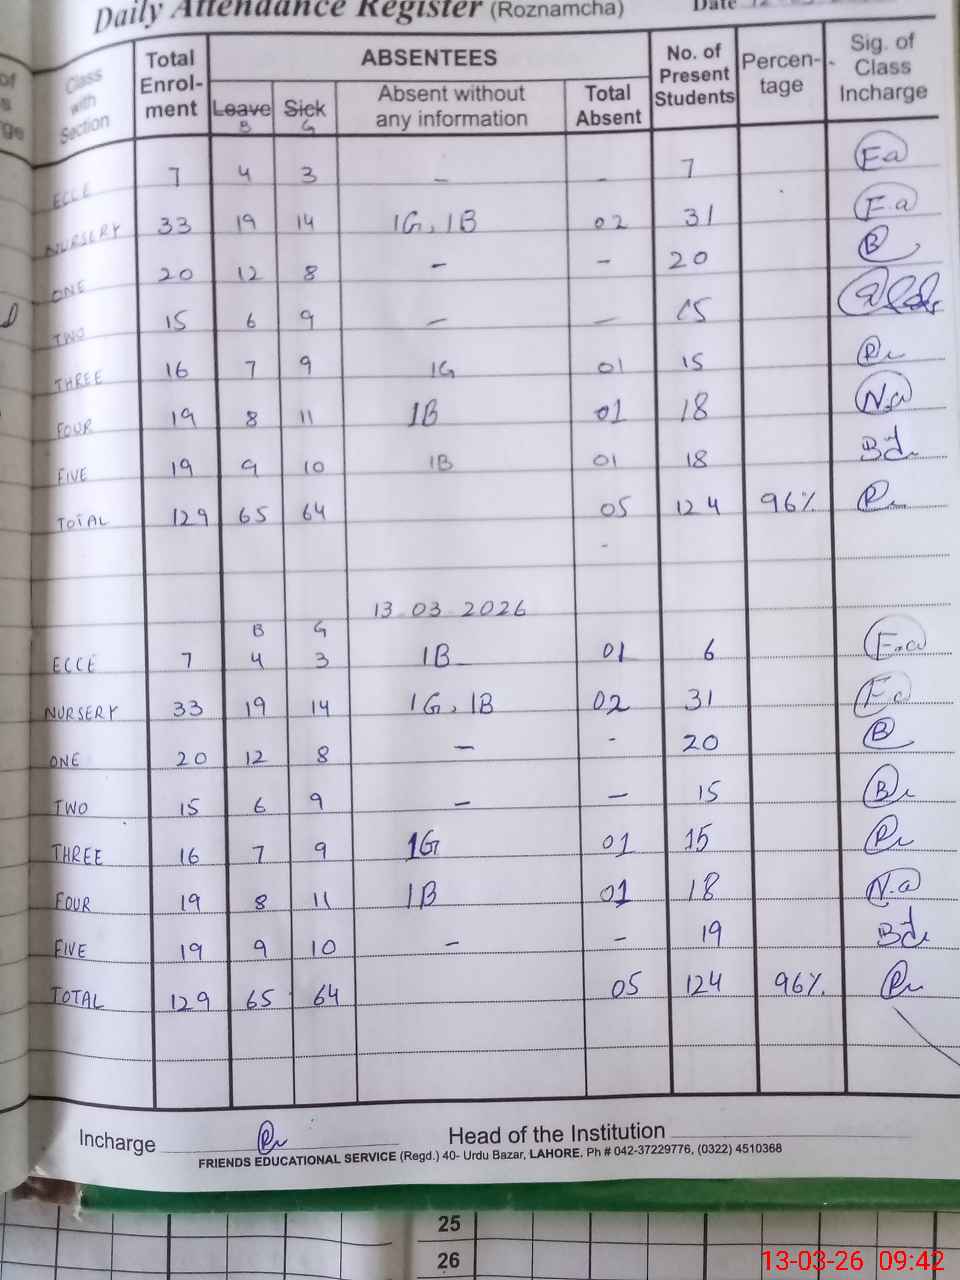 Daily Attendance Register (Roznamcha) Date
Class with Section Total Enrol- ment ABSENTEES No. of Present Students Percen- tage Sig. of Class Incharge
Leave B Sick G Absent without any information Total Absent
ECLE 7 4 3 - - 7 F.a
NURSERY 33 19 14 1G, 1B 02 31 F.a
ONE 20 12 8 - - 20 B
TWO 15 6 9 - - 15
THREE 16 7 9 1G 01 15
FOUR 19 8 11 1B 01 18 N.a
FIVE 19 9 10 1B 01 18
TOTAL 129 65 64 05 124 96%
-
13-03-2026
B G
ECCE 7 4 3 1B 01 6 F.a
NURSERY 33 19 14 1G, 1B 02 31
ONE 20 12 8 - - 20 B
TWO 15 6 9 - - 15
THREE 16 7 9 1G 01 15
FOUR 19 8 11 1B 01 18 N.a
FIVE 19 9 10 - - 19
TOTAL 129 65 64 05 124 96%
Incharge Head of the Institution
FRIENDS EDUCATIONAL SERVICE (Regd.) 40- Urdu Bazar, LAHORE. Ph # 042-37229776, (0322) 4510368
25
26
13-03-26 09:42